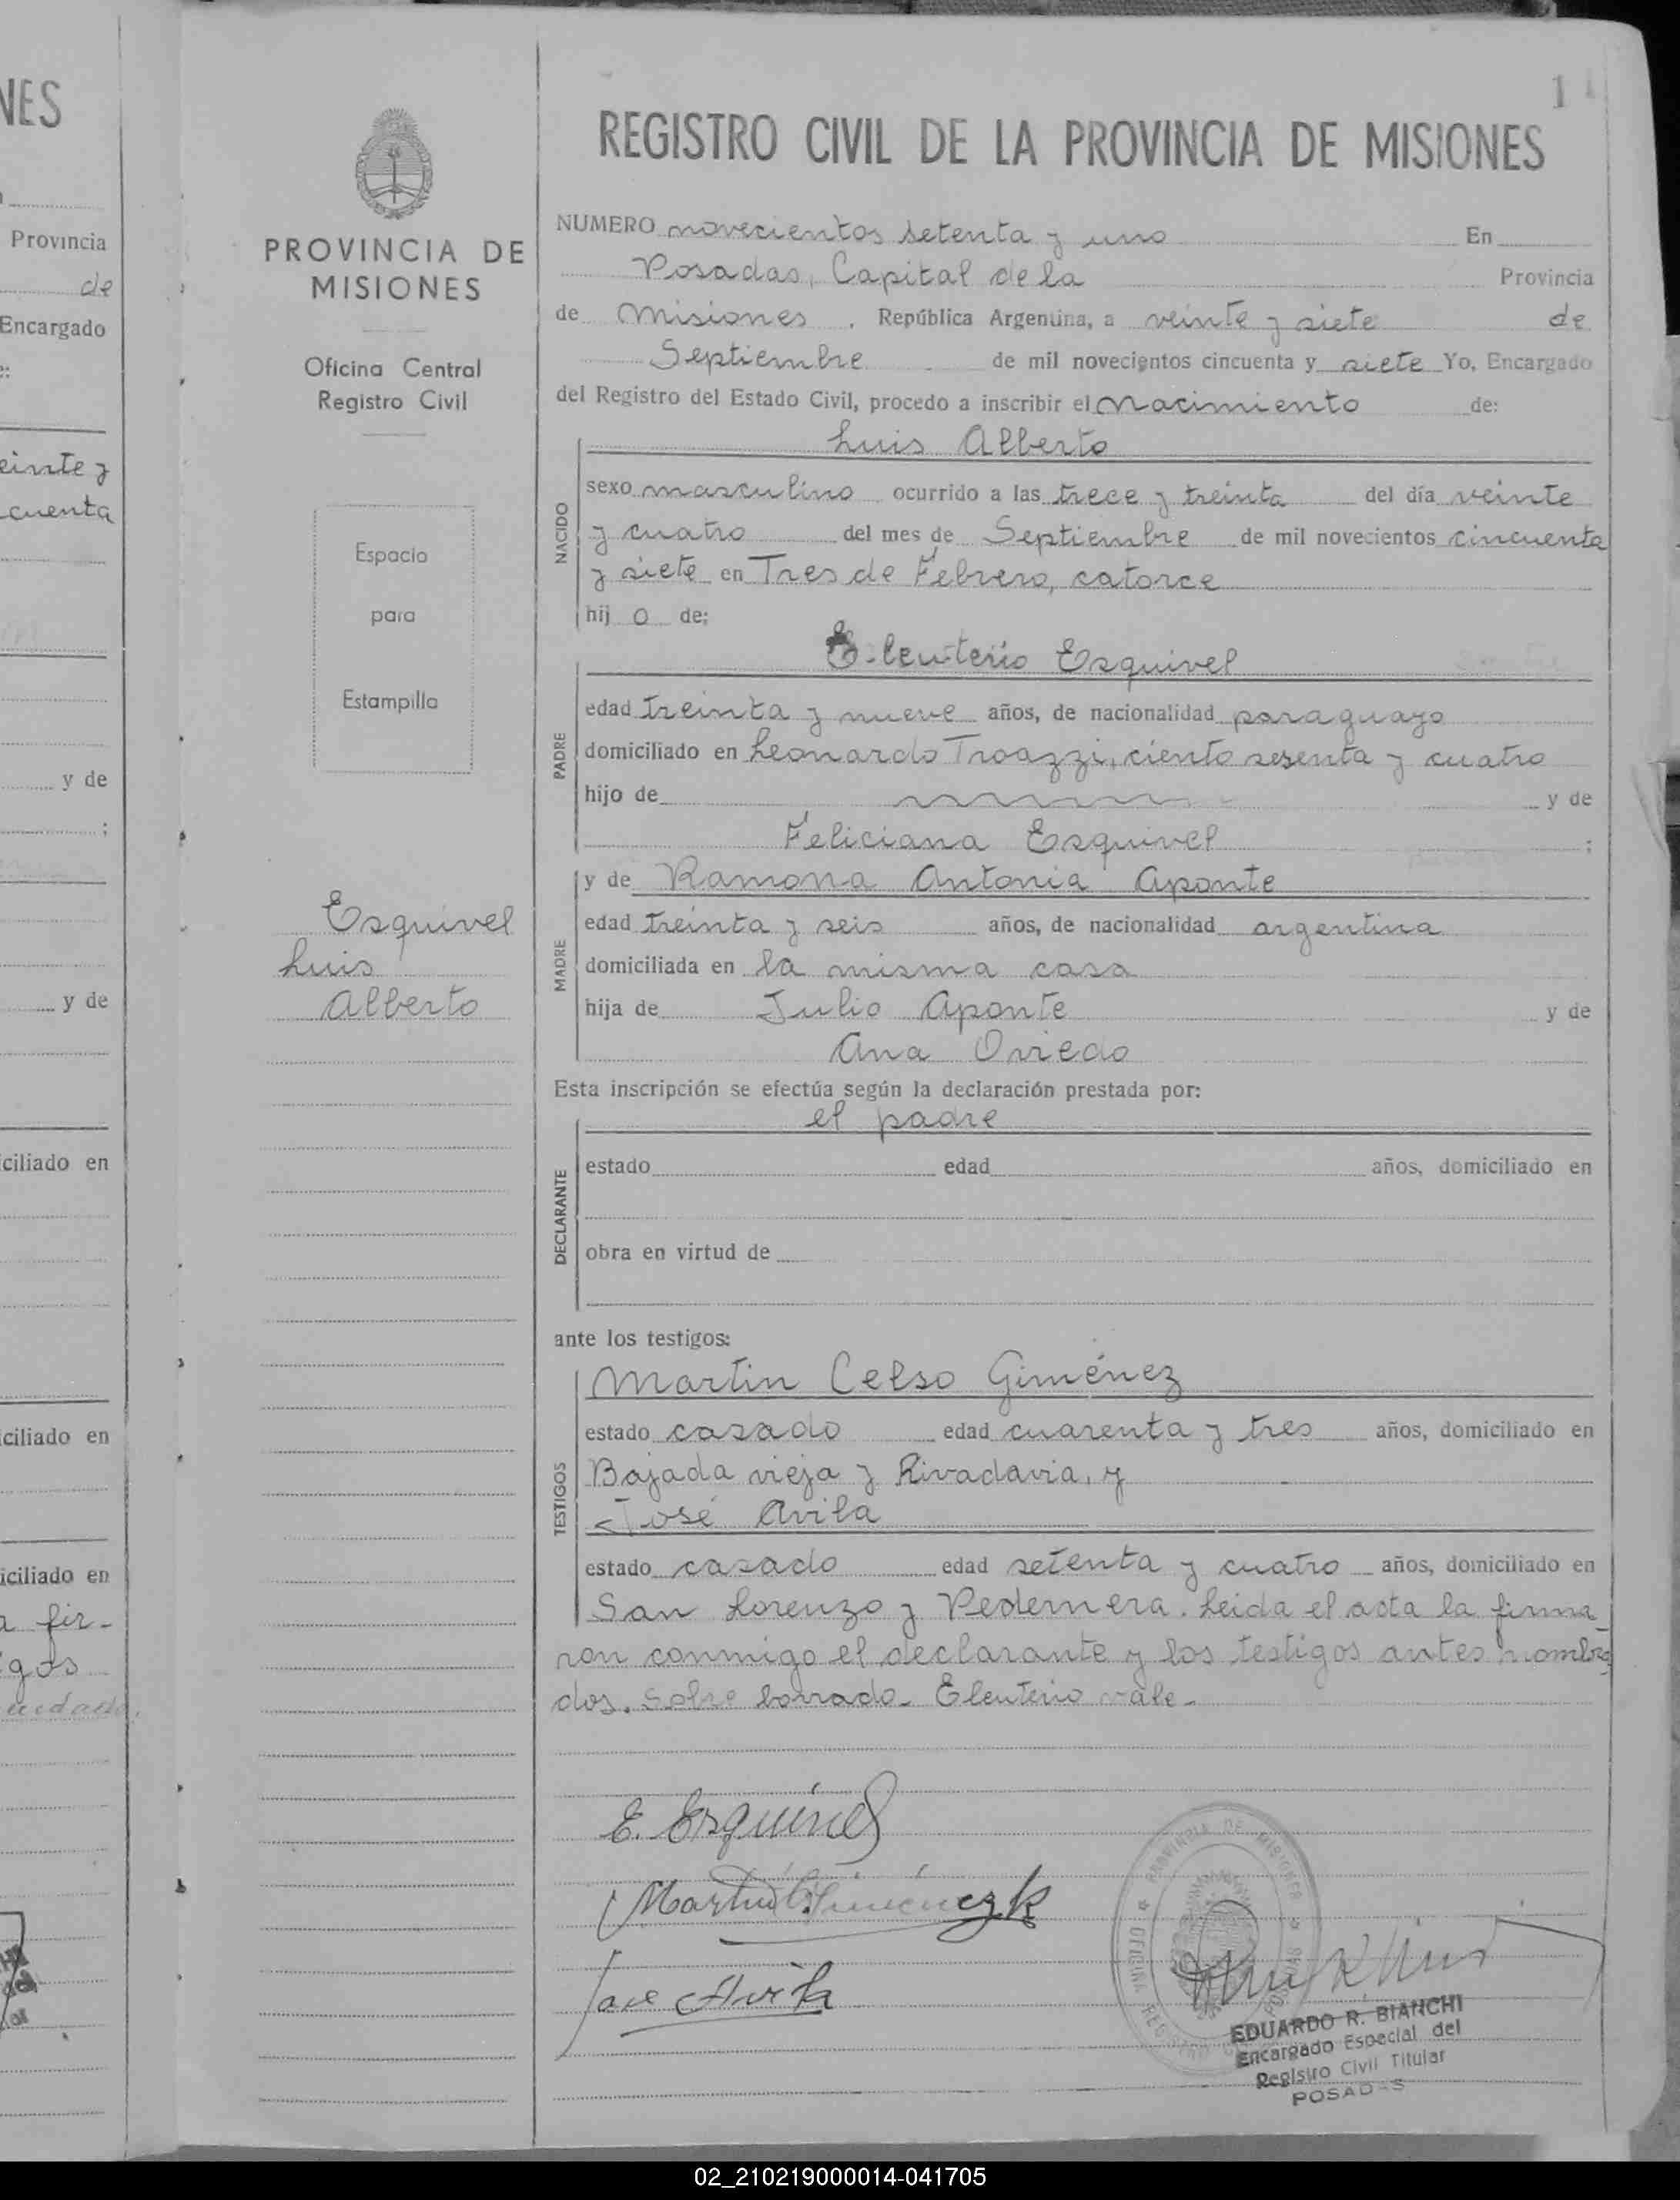 NES
Provincia
de
Encargado
einte y
cuenta
y de
y de
ciliado en
ciliado en
iciliado en
a fir-
gos
PROVINCIA DE
MISIONES
Oficina Central
Registro Civil
Espacio
para
Estampilla
Esquivel
Luis
Alberto
1
REGISTRO CIVIL DE LA PROVINCIA DE MISIONES
NUMERO novecientos setenta y uno En
Posadas, Capital de la Provincia
de Misiones, República Argentina, a veinte y siete de
Septiembre de mil novecientos cincuenta y siete Yo, Encargado
del Registro del Estado Civil, procedo a inscribir el Nacimiento de:
NACIDO
Luis Alberto
sexo masculino ocurrido a las trece y treinta del día veinte
y cuatro del mes de Septiembre de mil novecientos cincuenta
y siete en Tres de Febrero, catorce
hij o de;
PADRE
Eleuterio Esquivel
edad treinta y nueve años, de nacionalidad paraguayo
domiciliado en Leonardo Troazzi, ciento sesenta y cuatro
hijo de y de
Feliciana Esquivel ;
MADRE
y de Ramona Antonia Aponte
edad treinta y seis años, de nacionalidad argentina
domiciliada en la misma casa
hija de Julio Aponte y de
Ana Oviedo
Esta inscripción se efectúa según la declaración prestada por:
DECLARANTE
el padre
estado edad años, domiciliado en
obra en virtud de
ante los testigos:
TESTIGOS
Martin Celso Giménez
estado casado edad cuarenta y tres años, domiciliado en
Bajada vieja y Rivadavia, y
José Avila
estado casado edad setenta y cuatro años, domiciliado en
San Lorenzo y Pedernera. Leida el acta la firma
ron conmigo el declarante y los testigos antes nombra
dos. Sobre borrado- Eleuterio vale-
E. Esquivel
Martin C. Gimenez
Jose Avila
PROVINCIA DE MISIONES
OFICINA REGISTRO CIVIL POSADAS
EDUARDO R. BIANCHI
Encargado Especial del
Registro Civil Titular
POSADAS
02_210219000014-041705